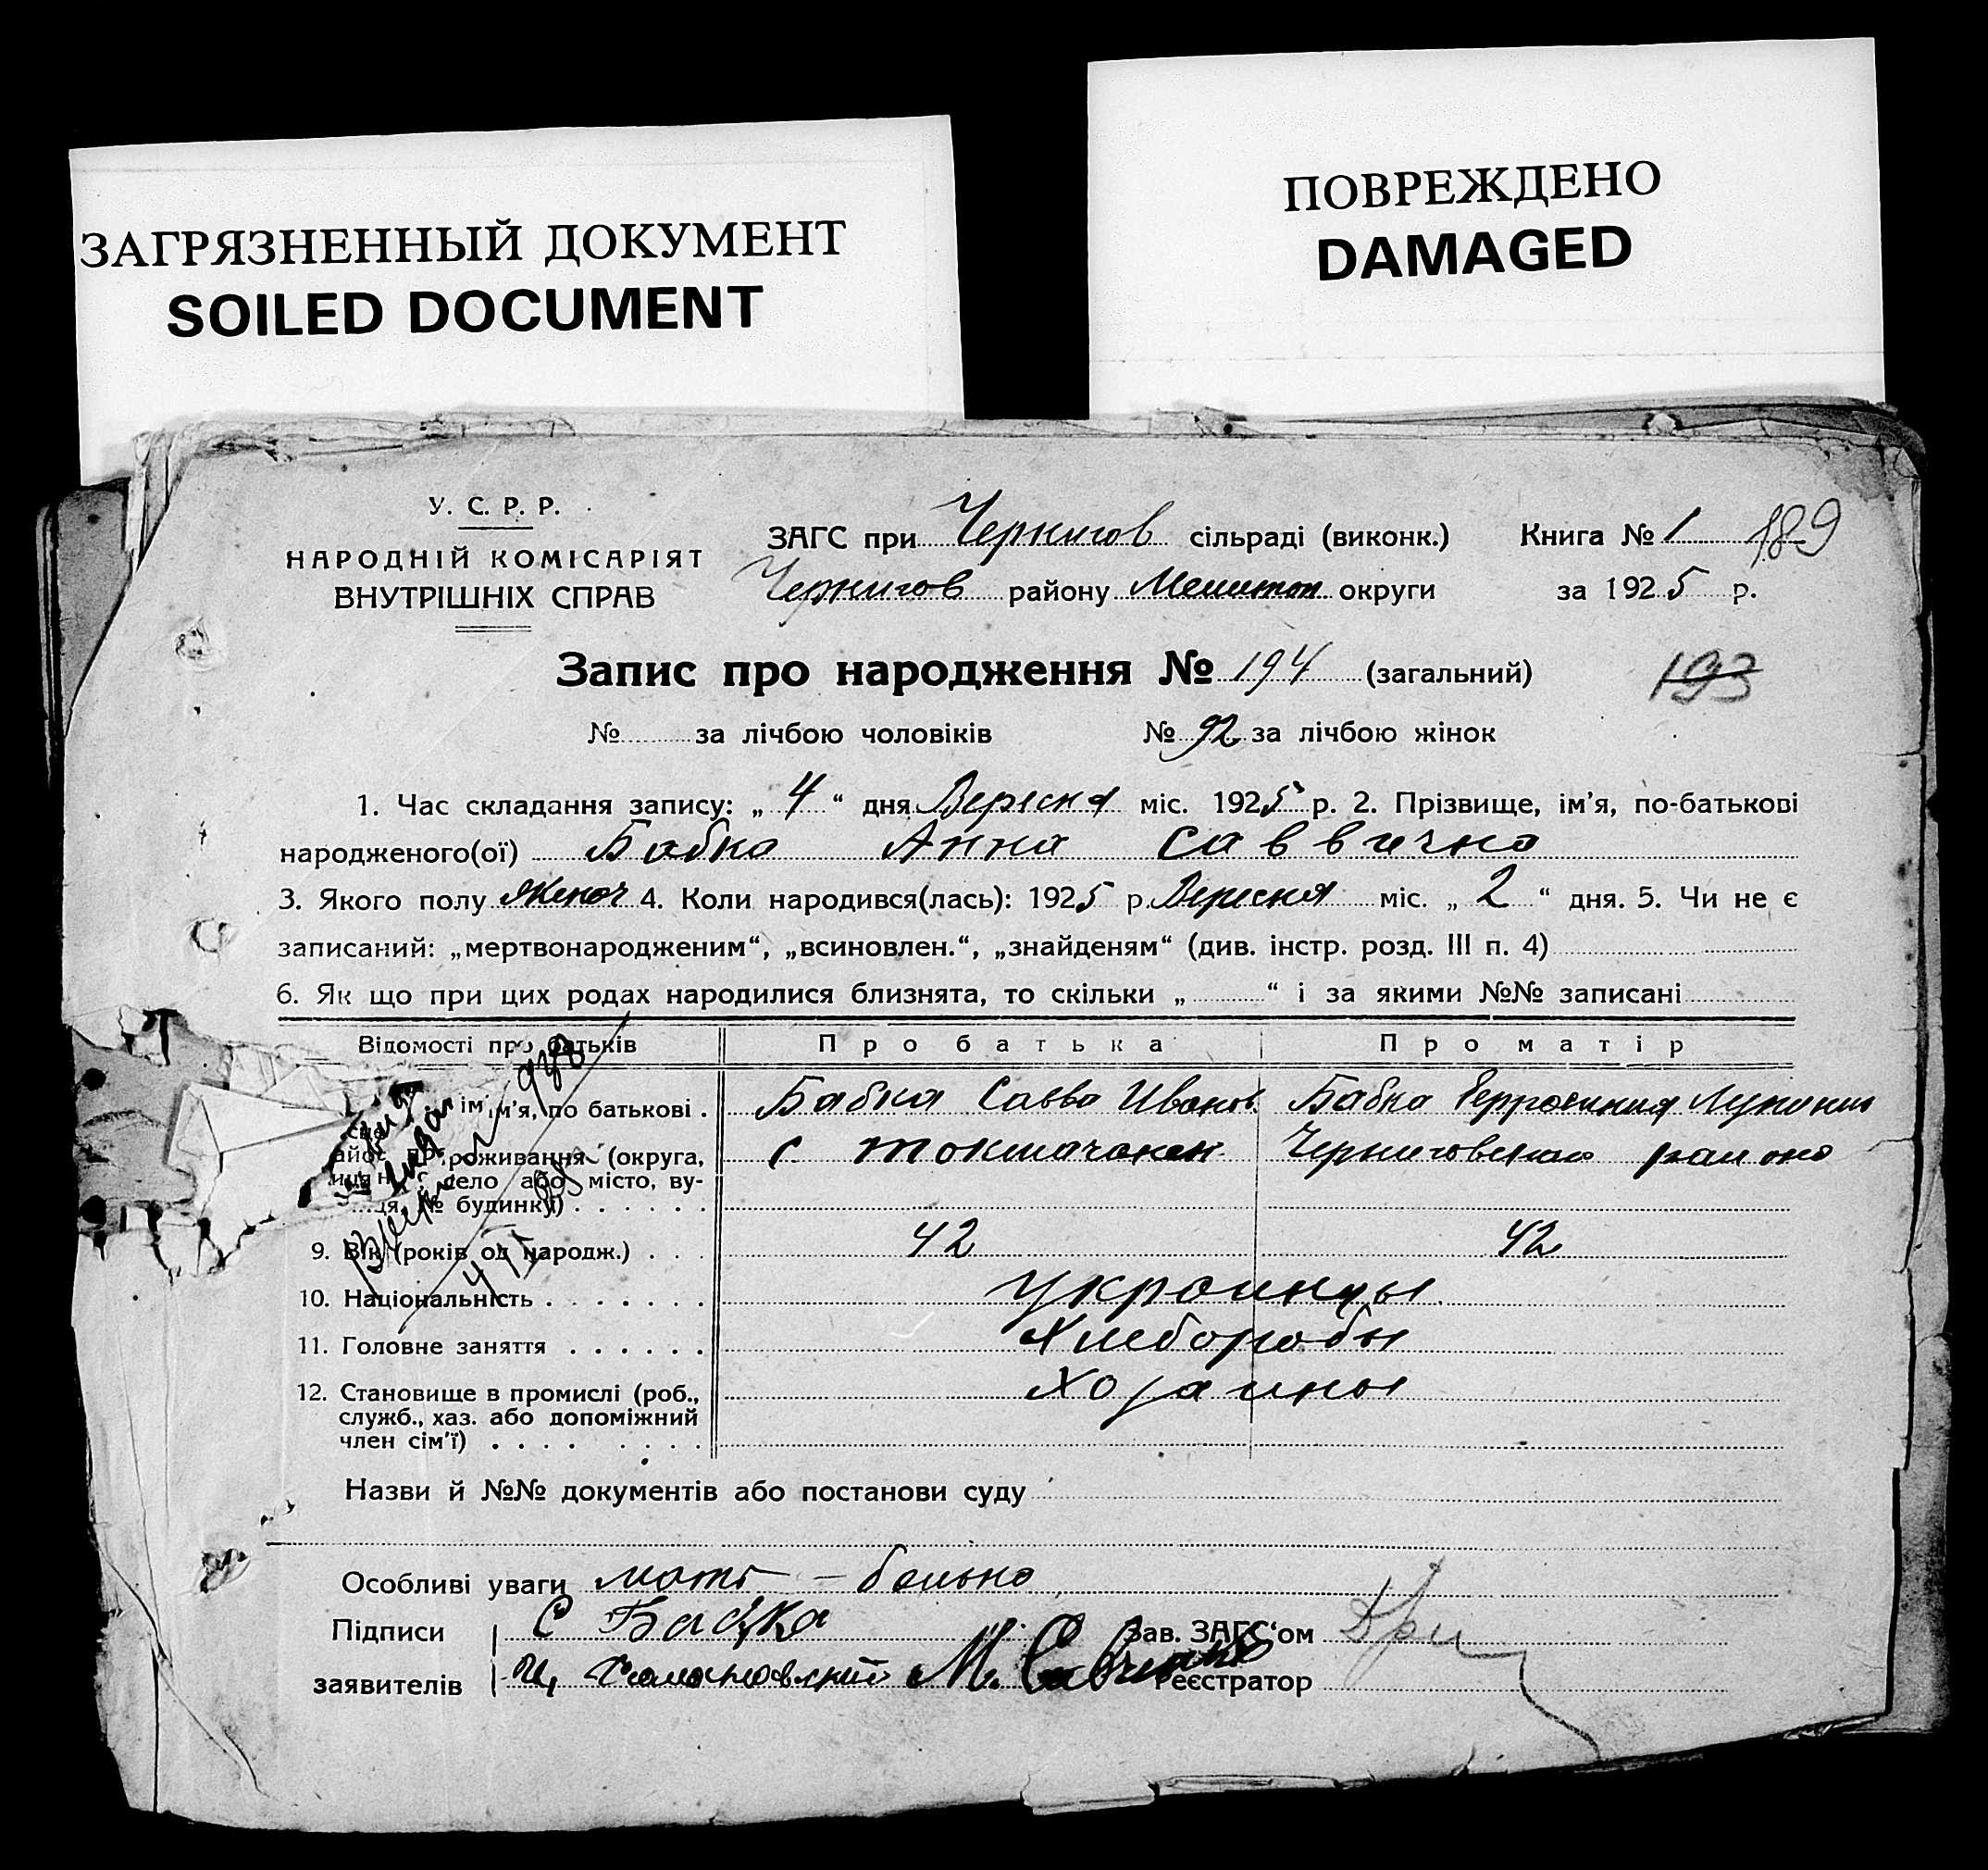 ЗАГРЯЗНЕННЫЙ ДОКУМЕНТ
SOILED DOCUMENT
ПОВРЕЖДЕНО
DAMAGED
У. С. Р. Р.
НАРОДНІЙ КОМІСАРІЯТ
ВНУТРІШНІХ СПРАВ
ЗАГС при Чернигов сільраді (виконк.) Книга № 1 189
Чернигов району Мелитоп округи за 1925 р.
Запис про народження № 194 (загальний) 193
№ за лічбою чоловіків № 92 за лічбою жінок
1. Час складання запису: „ 4 “ дня Вересня міс. 1925 р. 2. Прізвище, ім’я, по-батькові
народженого(ої) Бабка Анна Саввична
3. Якого полу женоч 4. Коли народився(лась): 1925 р. Вересня міс. „ 2 “ дня. 5. Чи не є
записаний: „мертвонародженим“, „всиновлен.“, „знайденям“ (див. інстр. розд. III п. 4)
6. Як що при цих родах народилися близнята, то скільки „ “ і за якими №№ записані
Відомості про батьків Про батька Про матір
ім’я, по батькові . Бабка Савва Иванов. Бабка
проживання (округа, с. Черниговского района
село або місто, ву-
№ будинку) . . . . . .
9. Вік (років од народж.) . . . 42 42
10. Національність . . . . . . . Украинцы
11. Головне заняття . . . . . . Хлеборобы
12. Становище в промислі (роб., Хозяины
служб., хаз. або допоміжний
член сім’ї) . . . . . . . .
Назви й №№ документів або постанови суду
Особливі уваги мать – больна
Підписи С Бабка Зав. ЗАГС‘ом
заявителів М. Савченко Реєстратор